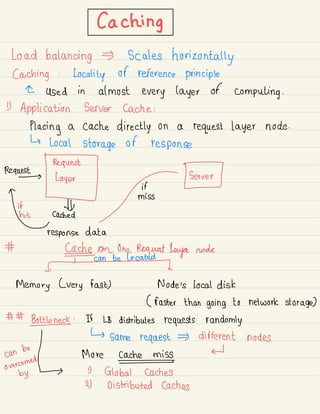 Caching
Load balancing ⇒ Scales horizontally
Caching : Locality of reference principle
↑ used in almost every layer of computing.
1) Application Server Cache:
Placing a cache directly on a request layer node.
↳ Local storage of response
Request
Request
Layer
Server
if
miss
if
hit
Cached
response data
# Cache on One Request Layer node
can be located
Memory (very fast)
Node's local disk
(faster than going to network storage)
## Bottleneck: If LB distributes requests randomly
↳ Same request ⇒ different nodes
can be
overcomed
by
More Cache miss
1) Global Caches
2) Distributed Caches